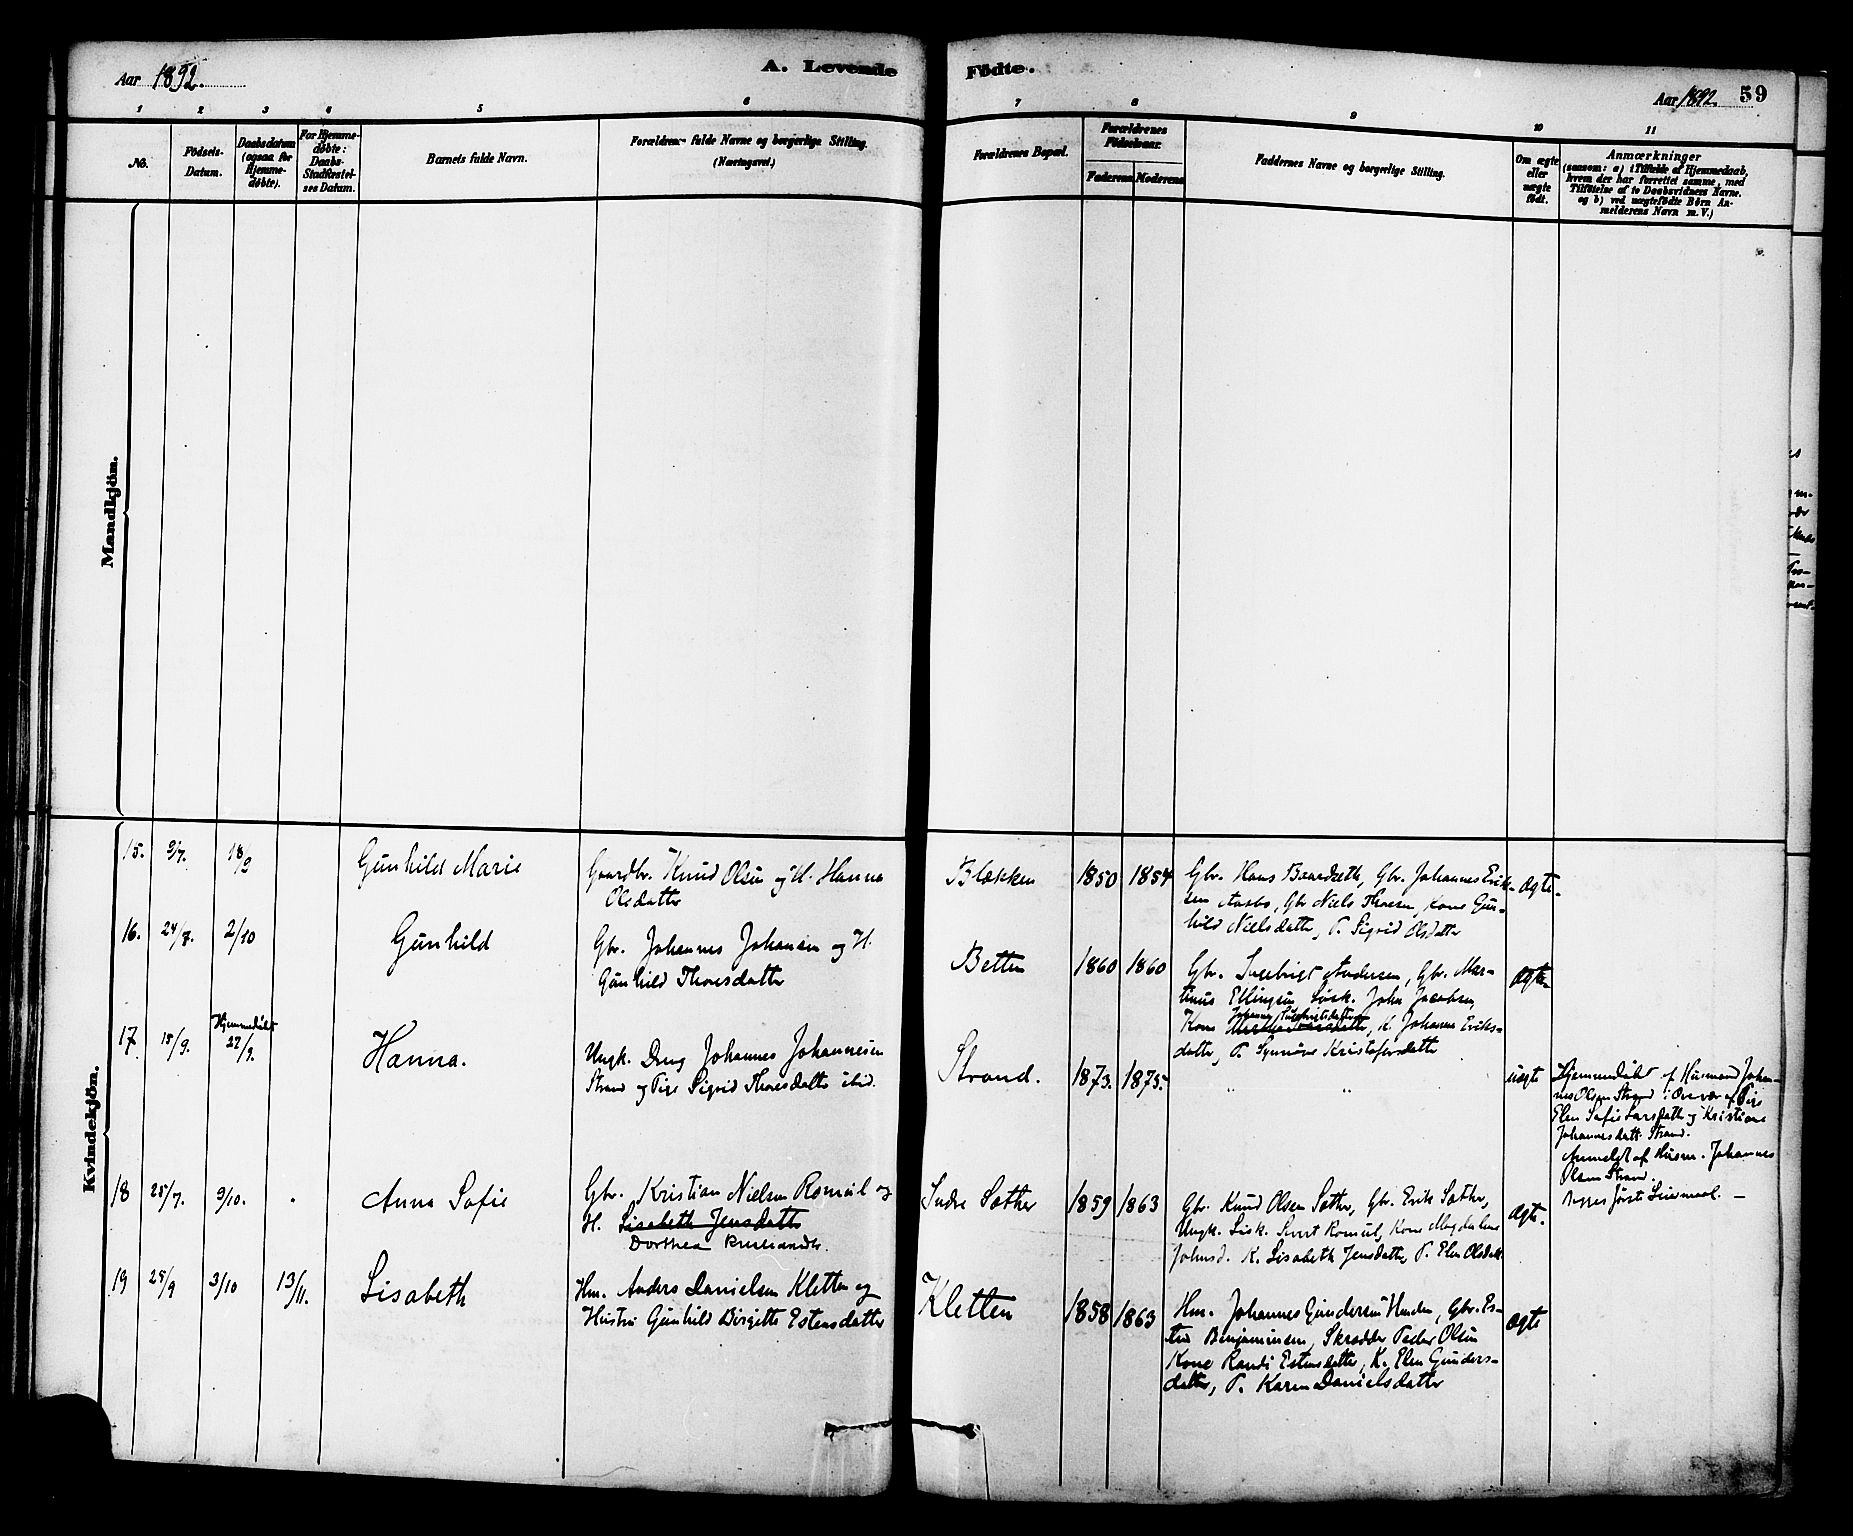 Aar 1892.
A. Levende
Födte.
Aar 1892. 59
1 2 3 4 5 6 7 8 9 10 11
No.
Födsels-
Datum.
Daabsdatum
(ogsaa for
Hjemme-
døbte).
For Hjemme-
døbte:
Daabs-
Stadfæstel-
ses Datum.
Barnets fulde Navn.
Forældrenes fulde Navne og borgerlige Stilling.
(Næringsvei.)
Forældrenes Bopæl.
Forældrenes
Födselsaar.
Faderens Moderens
Faddernes Navne og borgerlige Stilling.
Om ægte
eller
uægte
födt.
Anmærkninger
(saasom: a) i Tilfælde af Hjemmedaab,
hvem der har forrettet samme, med
Tilföielse af to Daabsvidners Navne.
og b) ved uægtefödte Börn An-
melderens Navn m. V.)
Mandkjön.
Kvindekjön.
15. 9/7. 18/9 Gunhild Marie
Gaardbr. Knud Olsen og H. Hanna
Olsdatter
Blekken 1850 1854
Gbr. Hans Baardseth, Gbr. Johannes Erik-
sen Aasbø, Gbr Niels Thoesen, Kone Gun-
hild Nielsdatter, P. Sigrid Olsdatter
Ægte.
16. 24/8. 2/10 Gunhild
Gbr. Johannes Johansen og H.
Gunhild Thoresdatter
Betten 1860 1860
Gbr. Ingebrigt Andersen, Gbr. Mar-
tinus Ellingsen, Løsk. John Jacobsen
Kone Johanna Ingebrigtsdatter, K. Johanna Eriks-
datter, P. Synnøve Kristofersdatter
Ægte
17 15/9. Hjemmedøbt
22/9. Hanna.
Ungk. Dreng Johannes Johannesen
Strand og Pige Sigrid Thoresdatter ibid.
Strand. 1873. 1875.
" "
uægte
Hjemmedøbt af Husmand Johan-
nes Olsen Strand i Overvær af Pige
Elen Sofie Larsdatter og Kristiane
Johannesdatt. Strand.
Anmeldt af Husm. Johannes
Olsen Strand.
Begges første Leiermaal. —
18 25/7. 9/10. . Anna Sofie
Gbr. Kristian Nielsen Romuil og
H. Lisabeth Jensdatter
Dorthea Kristiansdtr.
Indre Sæther 1859 1863
Gbr. Knud Olsen Sæther, Gbr. Erik Sæther,
Ungk. Løsk. Sivert Romuil, Kone Magdalene
Johnsd. K. Lisabeth Jensdatter, P. Elen Olsdatt.
Ægte.
19 25/9 3/10 13/11. Lisabeth
Hm. Anders Danielsen Kletten og
Hustru Gunhild Birgitte Estensdatter
Kletten 1858 1863
Hm. Johannes Gundersen Henden, Gbr. Es-
ten Benjaminsen, Skrædder Peder Olsen
Kone Randi Estensdatter, K. Elen Gunders-
datter, P. Karen Danielsdatter
Ægte